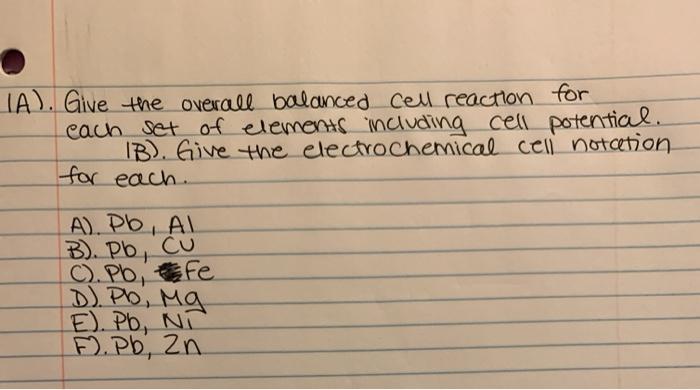 1A). Give the overall balanced cell reaction for
each set of elements including cell potential.
1B). Give the electrochemical cell notation
for each.
A). Pb, Al
B). Pb, Cu
C). Pb, Fe
D). Pb, Mg
E). Pb, Ni
F). Pb, Zn